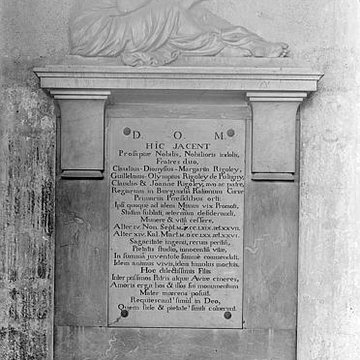 D. O. M
HIC JACENT
Prosapiæ Nobilis, Nobilioris indolis,
Fratres duo,
Claudius-Dionysius-Margarita Rigoley,
Guillelmus Olympius Rigoley de Puligny,
Claudio & Joanne Rigoley, avo ac patre,
Regiarum in Burgundiâ Rationum Curiæ
Primariis Præsidibus orti
Ipsi quoque ad idem Munus vix Promoti,
Studiis sublati, æternum desiderandi,
Munere & vitâ cessere,
Alter IV. Non. Sept.
Alter XIV. Kal. Mart.
Sagacitate ingenii, recum peritiâ,
Pietatis studio, innocentiâ vitæ,
In summâ juventute summè commendati.
Idem animus vivis, idem tumulus mortuis.
Hoc dilectissimis Filiis
Inter piissimos Patris atque Avi cineres,
Amoris erga hos & illos sui monumentum
Mater mœrens posuit.
Requiescant simul in Deo,
Quem fide & pietate simul coluerunt.